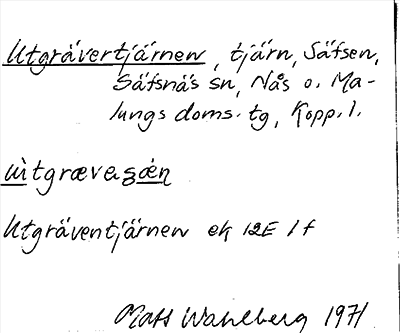 Utgrävertjärnen, tjärn, Säfsen,
Säfsnäs sn, Nås o. Ma-
lungs doms. tg, Kopp. l.
ùtgrævaʂǽn̥
Utgräventjärnen ek 12E 1f
Mats Wahlberg 1971